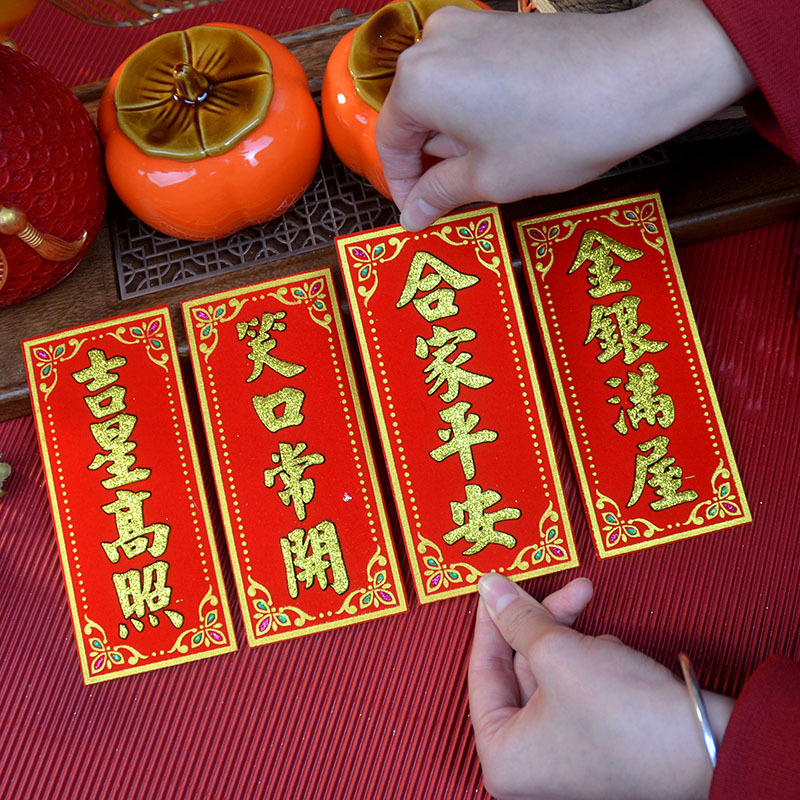 吉星高照
笑口常開
合家平安
金銀滿屋